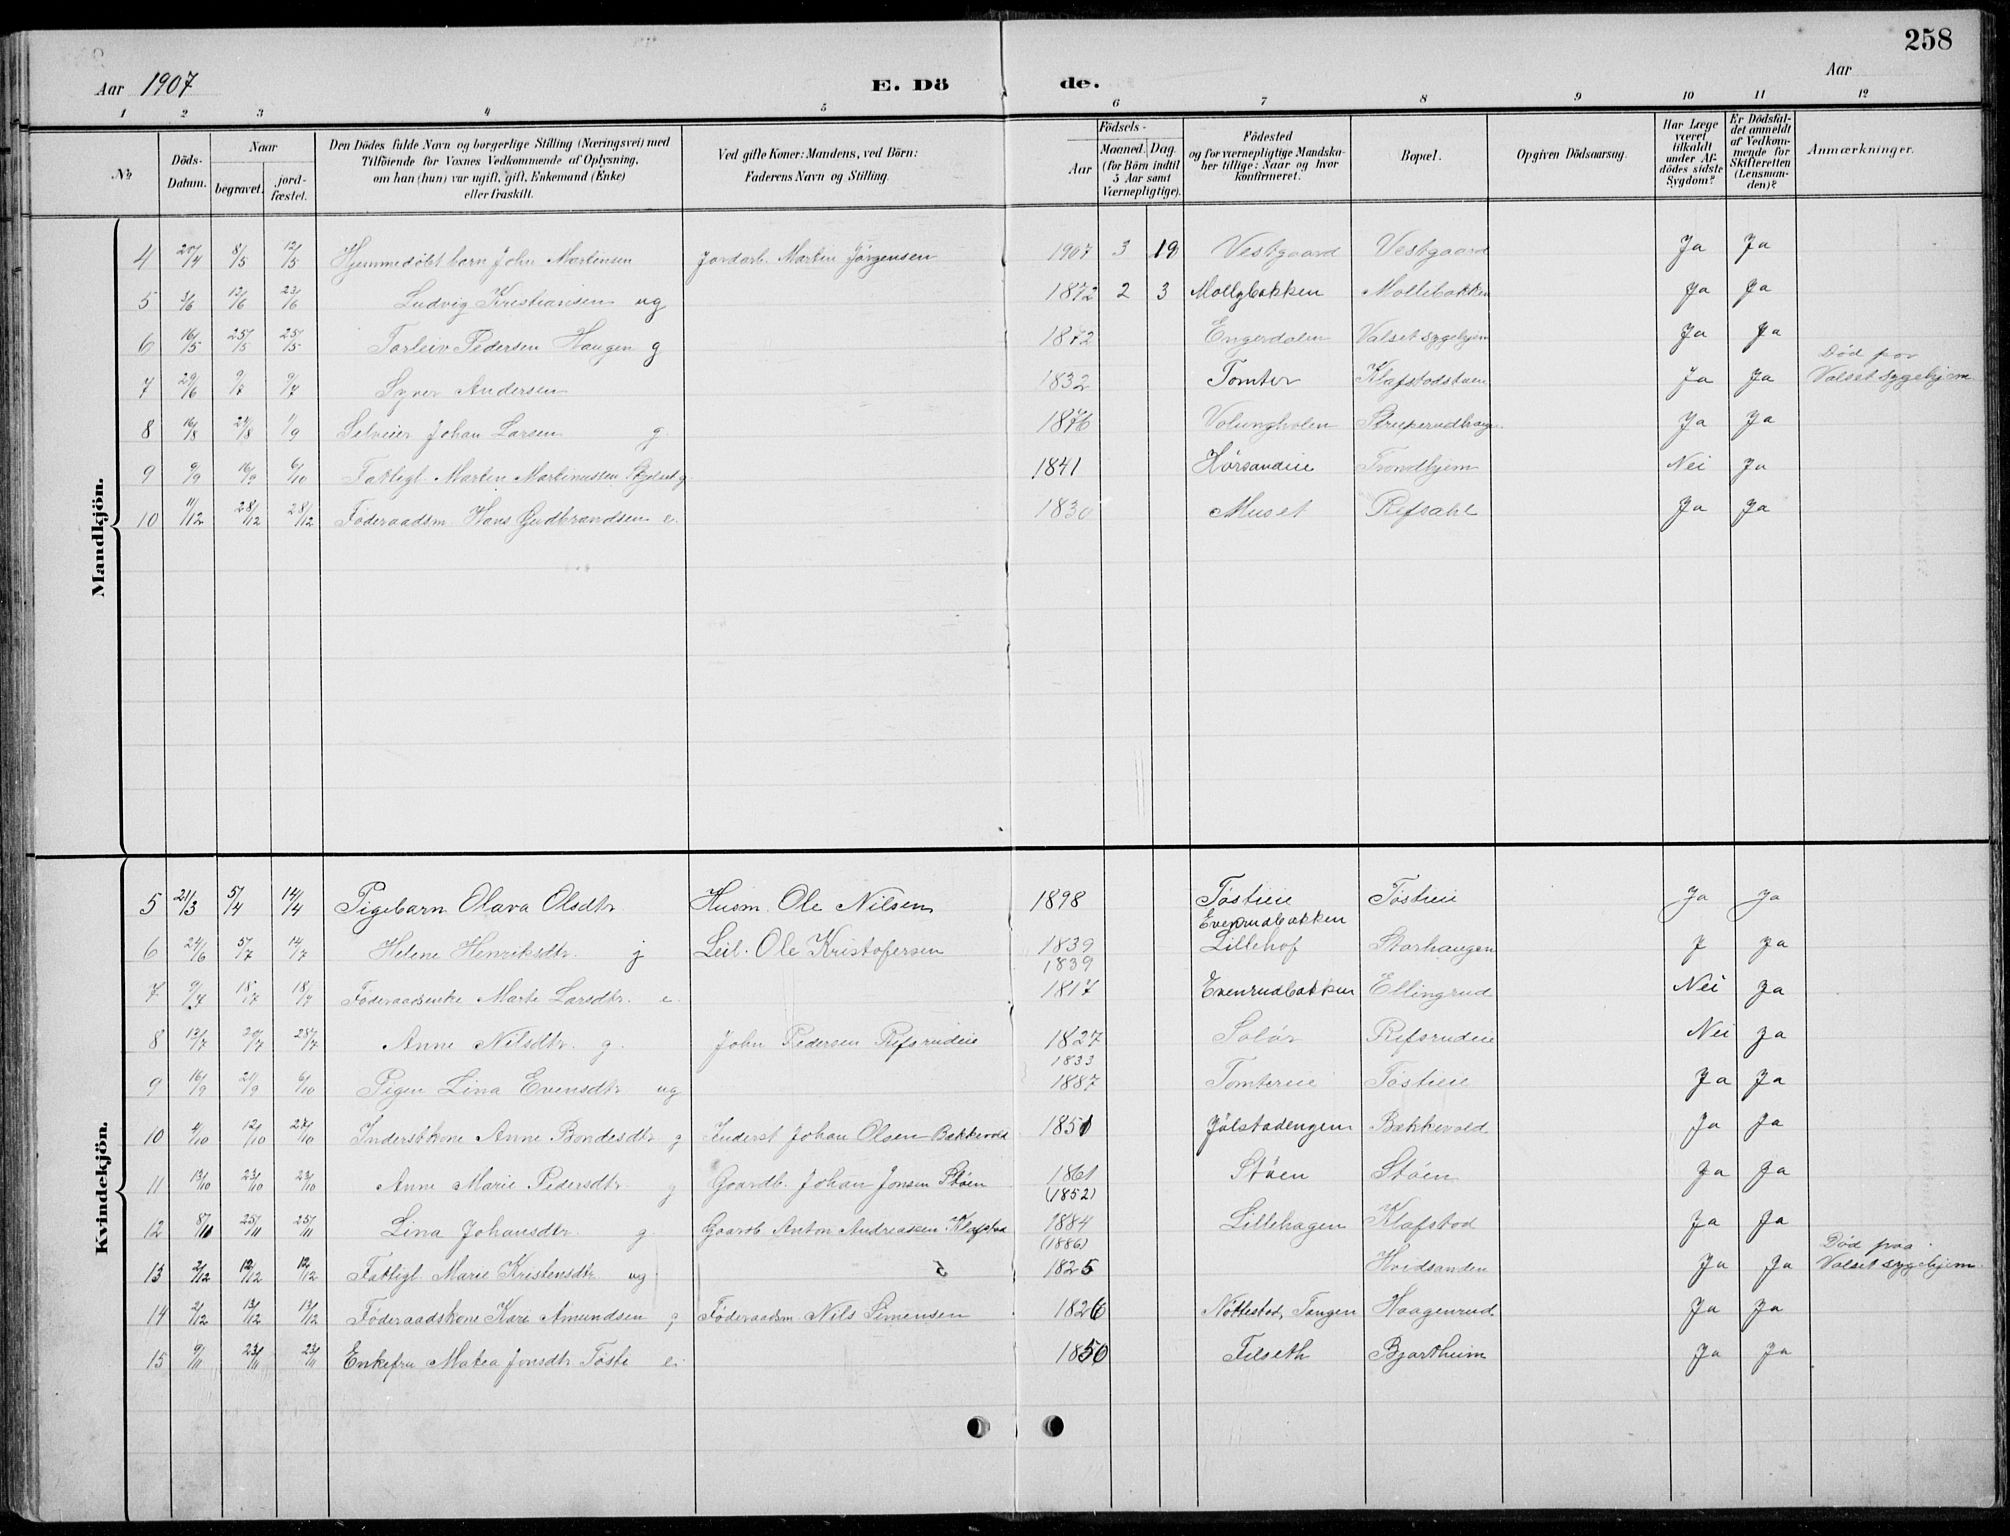 258
Aar 1907 E. Dö de. Aar
1 2 3 4 5 6 7 8 9 10 11 12
No
Döds-Datum.
Naar
begravet.
jord-fæstet.
Den Dödes fulde Navn og borgerlige Stilling (Næringsvei) med
Tilföiende for Voxnes Vedkommende af Oplysning,
om han (hun) var ugift, gift, Enkemand (Enke)
eller fraskilt.
Ved gifte Koner: Mandens, ved Börn:
Faderens Navn og Stilling.
Födsels-
Aar
Maaned. Dag.
(for Börn indtil
5 Aar samt
Værnepligtige).
Födested
og for værnepligtige Mandska-
ber tillige: Naar og hvor
konfirmeret.
Bopæl.
Opgiven Dödsaarsag.
Har Læge
været
tilkaldt
under Af-
dödes sidste
Sygdom?
Er Dödsfal-
det anmeldt
af Vedkom-
mende for
Skifteretten
(Lensman-
den)?
Anmærkninger.
Mandkjön.
4 20/4 8/5 12/5 Hjemmedøbt barn John Martinsen Jordarb. Martin Jørgensen 1907 3 19 Vestgaard Vestgaard Ja Ja
5 3/6 12/6 23/6 Ludvig Kristiansen ug 1872 2 3 Mollybakken Mollebakken Ja Ja
6 16/5 25/5 25/5 Torleiv Pedersen Haugen g 1872 Engerdalen Valset sygehjem Ja Ja
Død paa
7 29/6 9/7 9/7 Syver Andersen 1832 Tomter Klafstadstuen Ja Ja Valset sygehjem
8 16/8 24/8 1/9 Selveier Johan Larsen g. 1876 Volungholen Ja Ja
9 9/9 16/9 6/10 Fattigl. Martin Martinussen g. 1841 Hørsandeie Trondhjem Nei Ja
10 11/12 28/12 28/12 Føderaadsm Hans Gudbrandsen e. 1830 Muset Refsahl Ja Ja
Kvindekjön.
5 21/3 5/4 14/4 Pigebarn Olava Olsdtr Husm. Ole Nilsen 1898 Tøstieie Tøstieie Ja Ja
Evenrudbakken
6 24/6 5/7 14/7 Helene Henriksdtr. g Leil. Ole Kristofersen 1839 Lillehof Storhaugen J Ja
1839
7 9/7 18/7 18/7 Føderaadsenke Marte Larsdtr. e. 1817 Evenrudbakken Ellingrud Nei Ja
8 13/7 20/7 28/7 Anne Nilsdtr. g. John Pedersen Refsrudeie 1827 Solør Refsrudeie Nei Ja
1833
9 16/9 21/9 6/10 Pigen Lina Evensdtr ug 1887 Tomtereie Tøstieie Ja Ja
10 4/10 12/10 27/10 Inderstkone Anne Bondesdtr g Inderst Johan Olsen Bakkevold 1851 Jølstadengen Bakkevold Ja Ja
11 13/10 23/10 23/10 Anne Marie Pedersdtr g Gaardb. Johan Jonsen Støen 1861 Støen Støen Ja Ja
(1852)
12 8/11 25/11 25/11 Lina Johansdtr. g. Gaardb Anton Andreassen Klafstad 1884 Lillehagen Klafstad Ja Ja
(1886) Død paa
13 2/12 12/12 12/12 Fattigl Marie Kristensdtr ug 1825 Hvidsanden Ja Ja Valset sygehjem
14 2/12 13/12 13/12 Føderaadskone Kari Amundsen g Føderaadsm. Nils Simensen 1826 Nøttestad, Tangen Haagenrud Ja Ja
15 9/11 23/11 23/11 Enkefru Matea Jonsdtr Tøsti e. 1850 Filseth Bjartheim Ja Ja